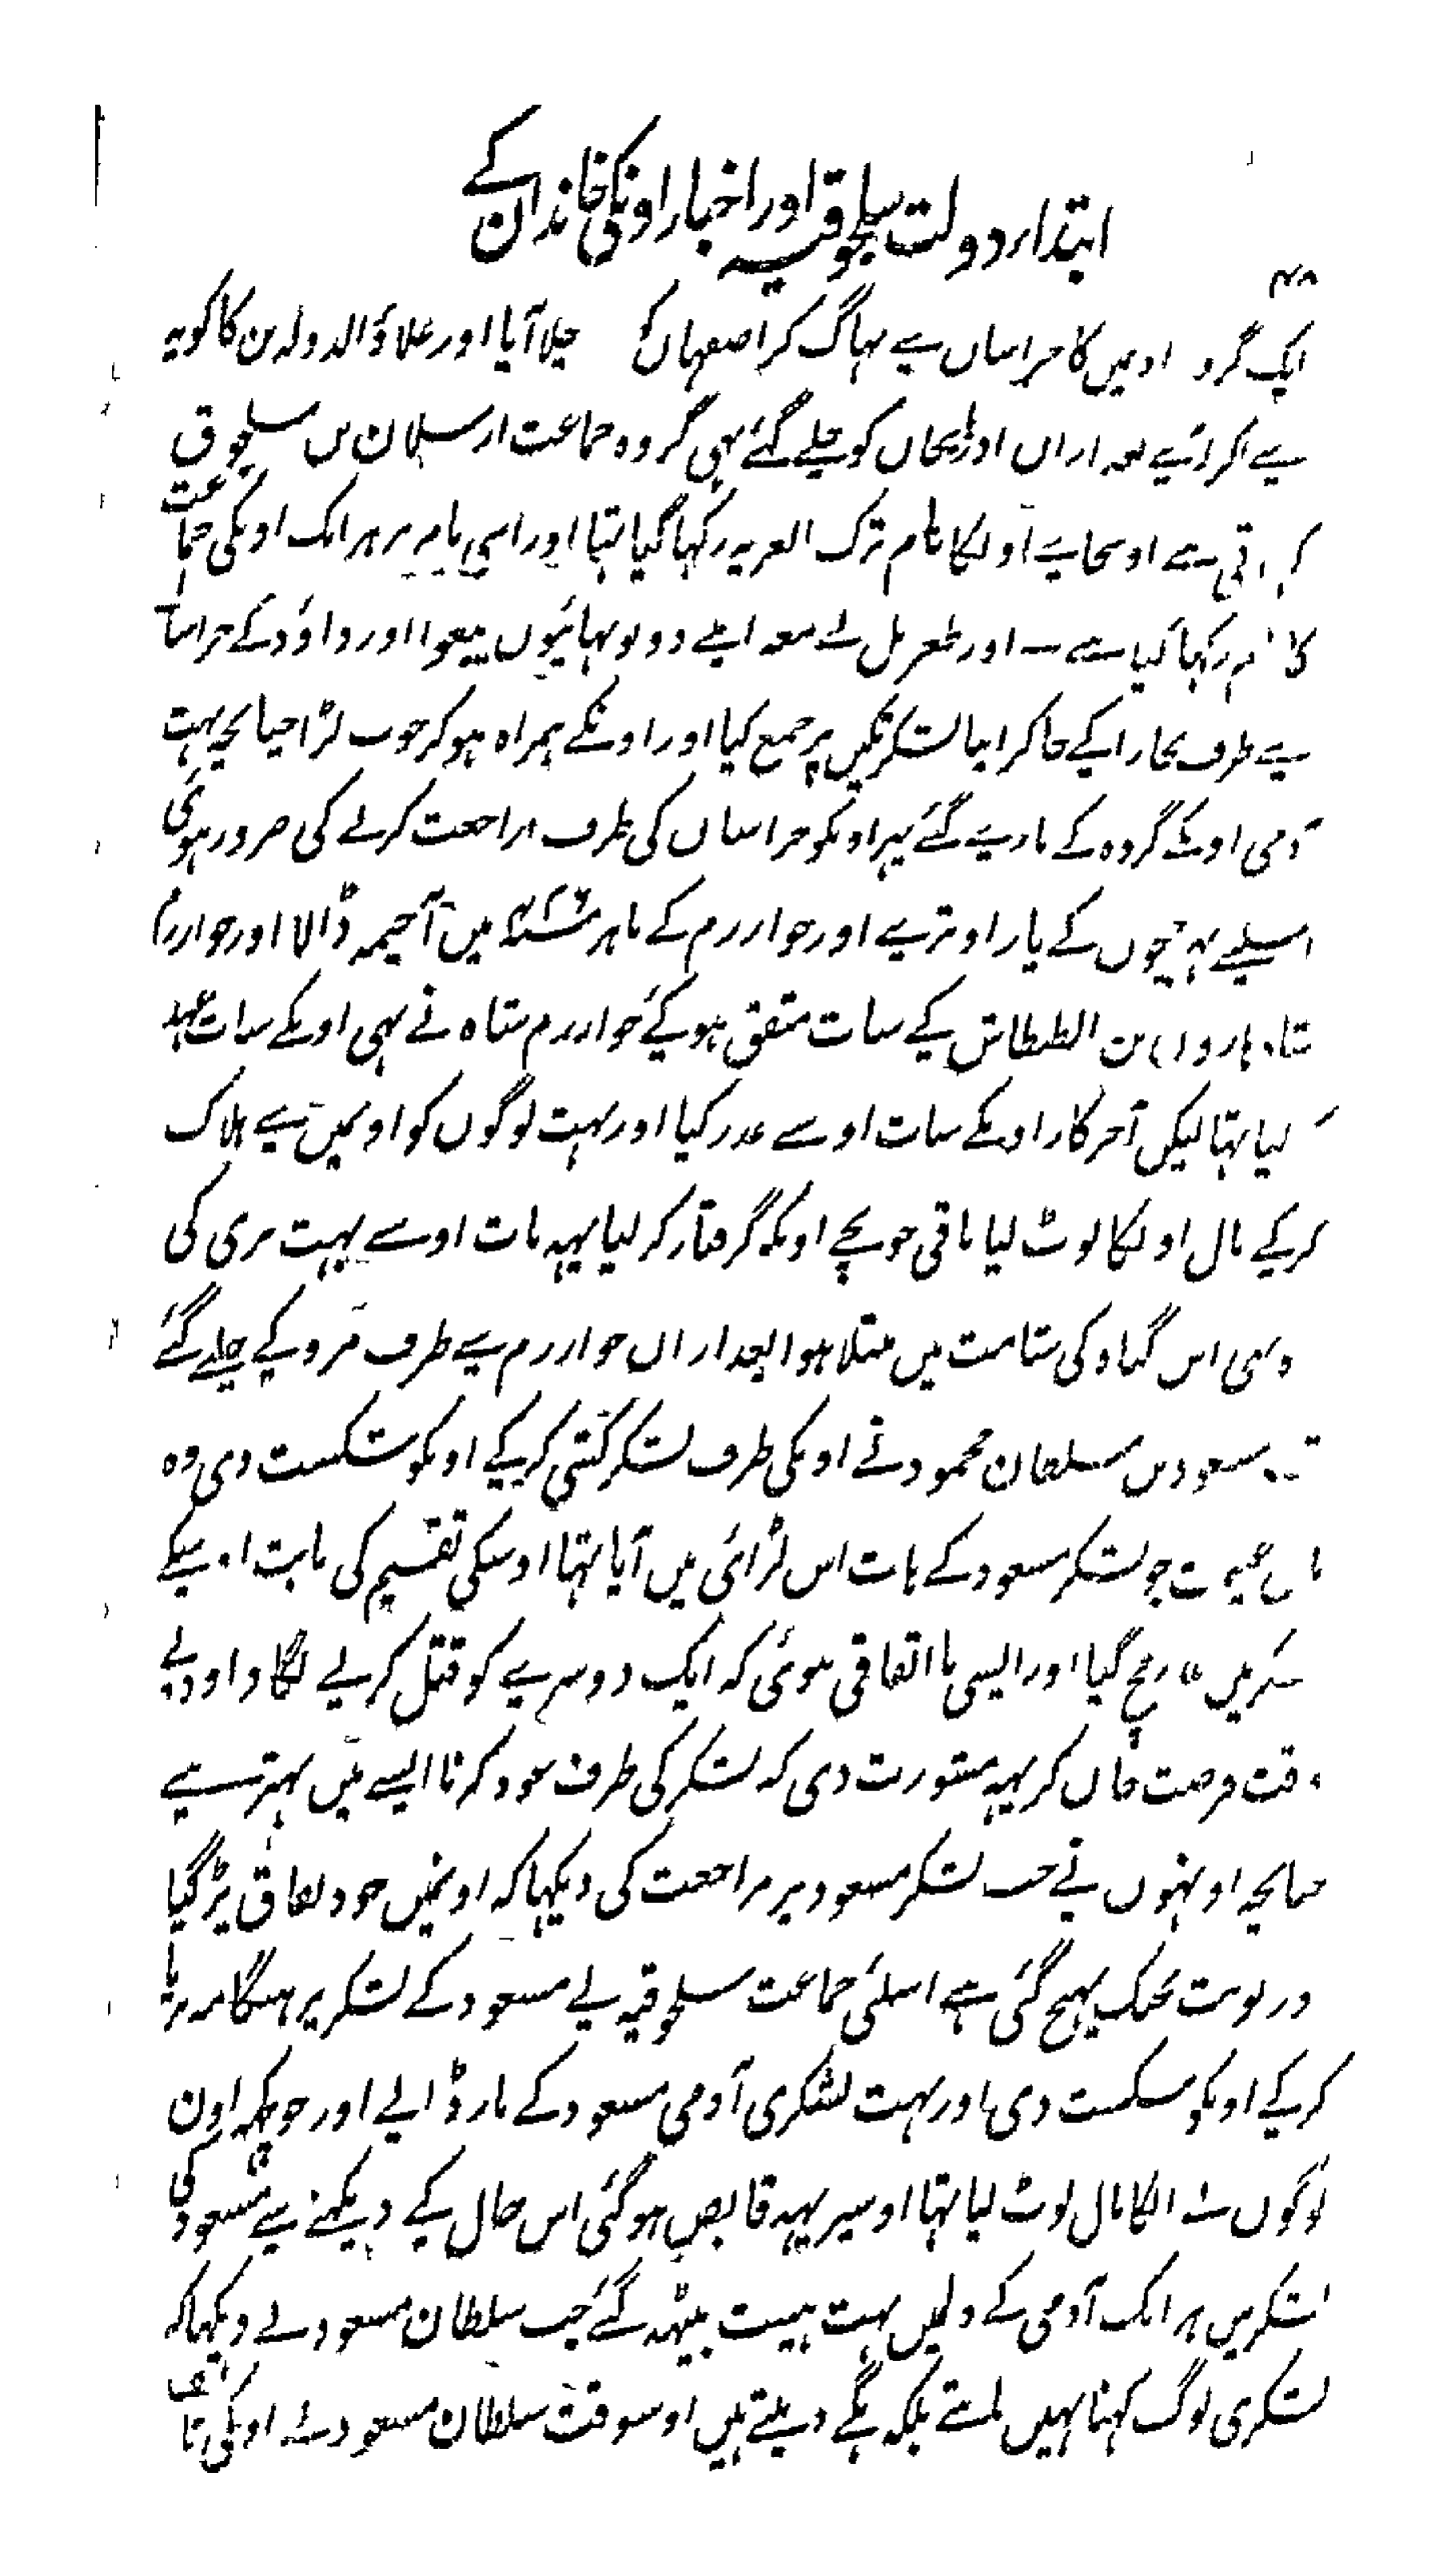 ابتداء دولت سلجوقیہ اور اخبار اونکی خاندان کے
۴۸
ایک گروہ اومیں کا خراساں سے بہاگ کر اصفہاں کو چلا آیا اور علاؤ الدولہ بن کاکویہ
سے اکر لڑے بعد ازاں اذربیجاں کو چلے گئے یہی گروہ جماعت ارسلان بن سلجوق
کی باقی ہے اوسجا پے اونکا نام ترک الغریہ رکہا گیا تہا اور اسی نام پر ہر ایک اونکی جماعت
کا نام رکہا گیا ہے ۔ اور طغرل بل نے معہ اپنے دونو بہائیوں بیغوا اور داؤد کے خراسا
سے طرف بخارا کے جاکر اپنا لشکر تکیں پر جمع کیا اور اونکے ہمراہ ہوکر خوب لڑا چنانچہ بہت
آدمی اونکے گروہ کے مارے گئے پہر اونکو خراساں کی طرف مراجعت کرنے کی ضرور ہوئی
اسیلیے نہر جیحوں کے پار اوترے اور خوارزم کے باہر میں آ خیمہ ڈالا اور خوارزم
شاہ ہاروں بن الطنطاش کے سات متفق ہوکئے خوارزم شاہ نے بہی اونکے سات عہد
کیا تہا لیکں آخر کار اونکے سات اوسے غدر کیا اور بہت لوگوں کو اونمیں سے ہلاک
کرکے مال اونکا لوٹ لیا باقی جو بچے اونکو گرفتار کر لیا یہہ بات اوسے بہت بری کی
وہی اس گناہ کی شامت میں مبتلا ہوا بعد ازاں خوارزم سے طرف مرو کے چلے گئے
مسعود بن سلطان محمود نے اونکی طرف لشکر کشی کرکے اونکو شکست دی وہ
مال غنیمت جو لشکر مسعود کے ہات اس لڑائی میں آیا تہا اوسکی تقسیم کی بابت اوسکے
لشکر میں مچ گیا اور ایسی نااتفاقی ہوئی کہ ایک دوسرے کو قتل کرنے لگا داود نے
وقت فرصت جاں کر یہہ مشورت دی کہ لشکر کی طرف عود کرنا ایسے میں بہتر ہے
چنانچہ اونہوں نے جب لشکر مسعود پر مراجعت کی دیکہا کہ اونمیں خود نفاق پڑ گیا
اور نوبت جنگ پہنچ گئی ہے اسلئی جماعت سلجوقیہ نے مسعود کے لشکر پر ہنگامہ برپا
کرکے اونکو شکست دی اور بہت لشکری آدمی مسعود کے مار ڈالے اور جو کچہہ اون
لوگوں نے انکا مال لوٹ لیا تہا اوسپر یہہ قابض ہوگئی اس حال کے دیکہنے سے مسعود کی
لشکر میں ہر ایک آدمی کے دلمیں بہت ہیبت بیٹہہ گئے جب سلطان مسعود نے دیکہا کہ
لشکری لوگ کہنا نہیں مانتے بلکہ بہگے دیتے ہیں اوسوقت سلطان مسعود نے اونکی تالیف